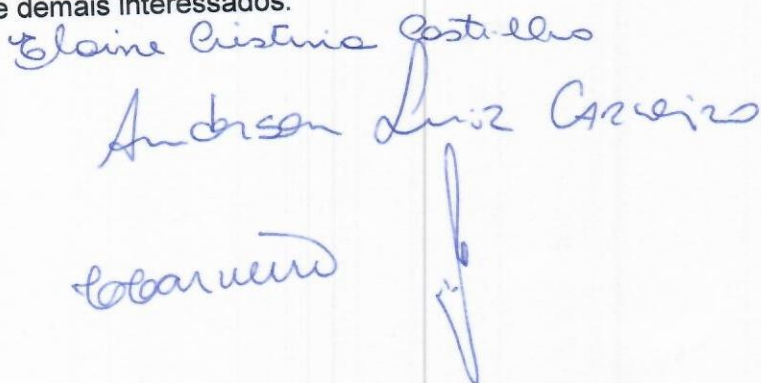 e demais interessados.
Elaine Cristina Castilho
Anderson Luiz Carneiro